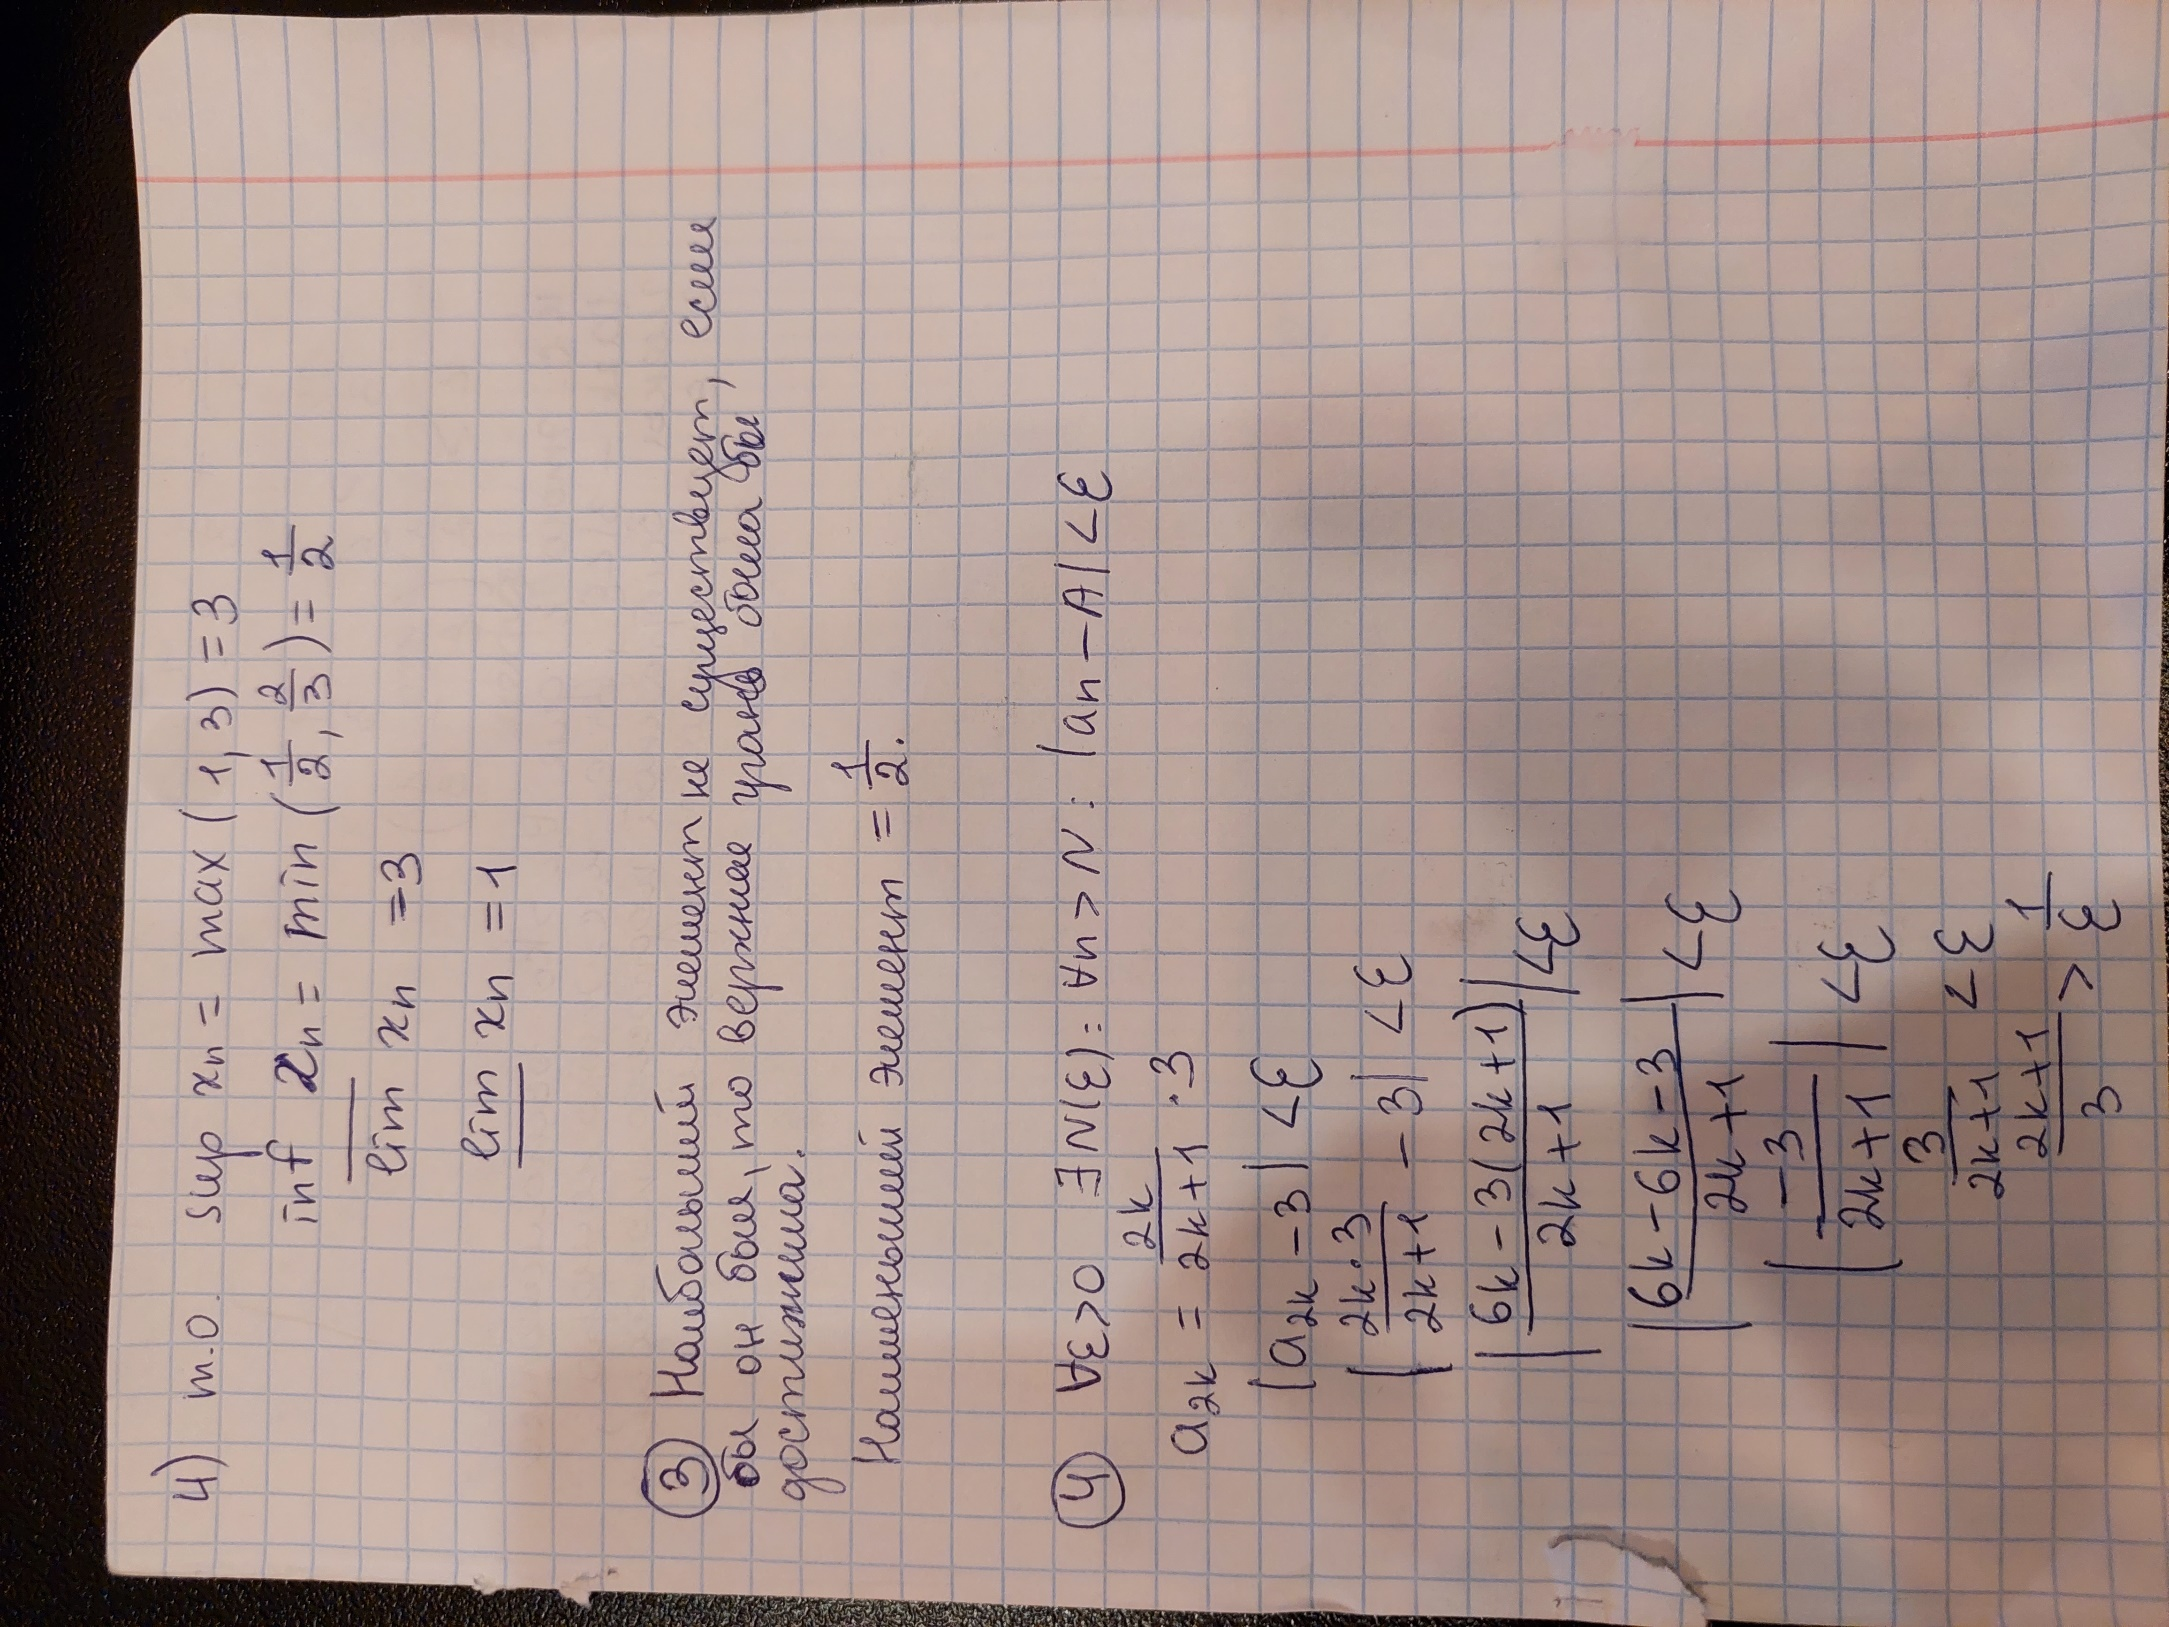 4) т.о. sup xₙ = max (1, 3) = 3
inf xₙ = min (1/2, 2/3) = 1/2
l̅i̅m̅ xₙ = 3
l̲i̲m̲ xₙ = 1
③ Наибольший элемент не существует, если
бы он был, то верхняя грань была бы
достижима.
Наименьший элемент = 1/2.
④ ∀ε>0 ∃N(ε): ∀n>N: |aₙ-A|<ε
a₂ₖ = 2k/(2k+1) · 3
|a₂ₖ-3| <ε
|2k·3/(2k+1) - 3| <ε
|(6k-3(2k+1))/(2k+1)| <ε
|(6k-6k-3)/(2k+1)| <ε
|-3/(2k+1)| <ε
3/(2k+1) <ε
(2k+1)/3 > 1/ε